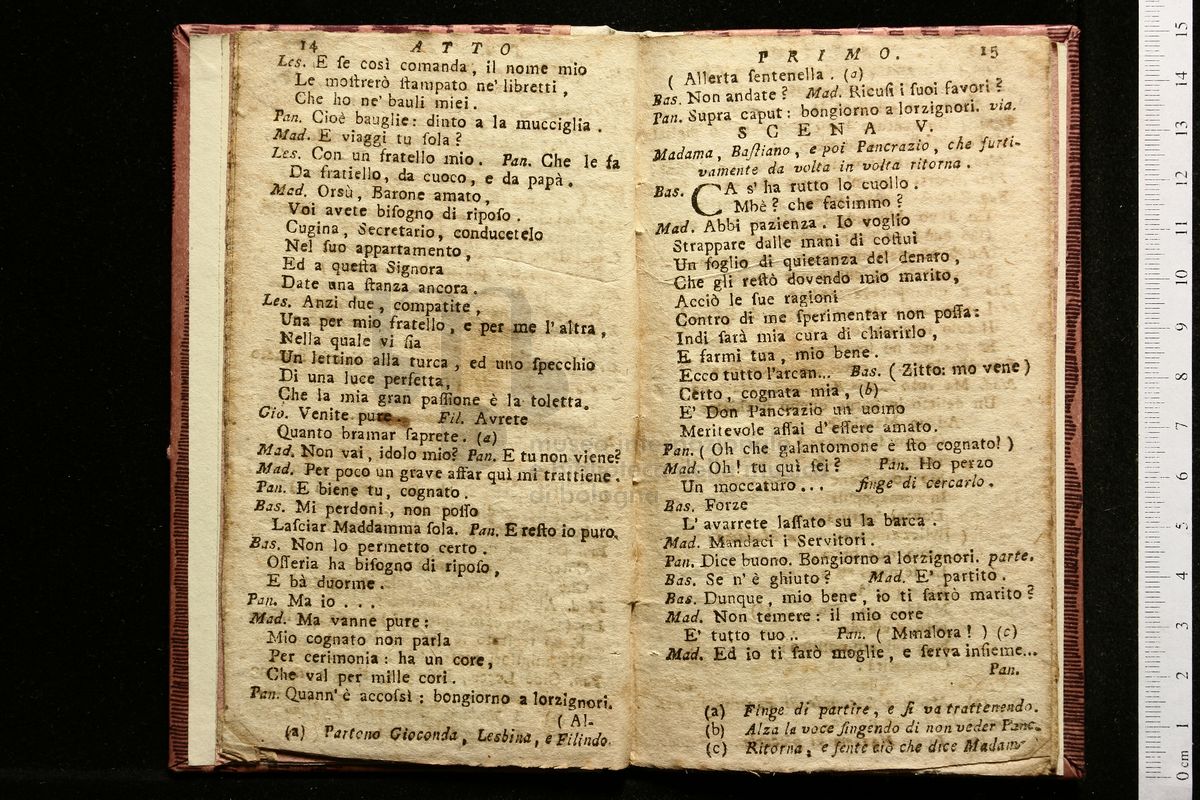 14 ATTO
Les. E ſe così comanda, il nome mio
Le moſtrerò ſtampato ne' libretti,
Che ho ne' bauli miei.
Pan. Cioè bauglie: dinto a la mucciglia.
Mad. E viaggi tu ſola?
Les. Con un fratello mio. Pan. Che le fa
Da fratiello, da cuoco, e da papà.
Mad. Orsù, Barone amato,
Voi avete biſogno di ripoſo.
Cugina, Secretario, conducetelo
Nel ſuo appartamento,
Ed a queſta Signora
Date una ſtanza ancora.
Les. Anzi due, compatite,
Una per mio fratello, e per me l'altra,
Nella quale vi ſia
Un lettino alla turca, ed uno ſpecchio
Di una luce perfetta,
Che la mia gran paſſione è la toletta.
Gio. Venite pure Fil. Avrete
Quanto bramar ſaprete. (a)
Mad. Non vai, idolo mio? Pan. E tu non viene?
Mad. Per poco un grave affar quì mi trattiene.
Pan. E biene tu, cognato.
Bas. Mi perdoni, non poſſo
Laſciar Maddamma ſola. Pan. E reſto io puro.
Bas. Non lo permetto certo.
Oſſeria ha biſogno di ripoſo,
E bà duorme.
Pan. Ma io...
Mad. Ma vanne pure:
Mio cognato non parla
Per cerimonia: ha un core,
Che val per mille cori.
Pan. Quann' è accoſsì: bongiorno a lorzignori.
( Al-
(a) Partono Gioconda, Lesbina, e Filindo.
PRIMO. 15
( Allerta ſentenella. (a)
Bas. Non andate? Mad. Ricuſi i ſuoi favori?
Pan. Supra caput: bongiorno a lorzignori. via.
SCENA V.
Madama, Baſtiano, e poi Pancrazio, che furti-
vamente da volta in volta ritorna.
Bas. CA s'ha rutto lo cuollo.
Mbè? che facimmo?
Mad. Abbi pazienza. Io voglio
Strappare dalle mani di coſtui
Un foglio di quietanza del denaro,
Che gli reſtò dovendo mio marito,
Acciò le ſue ragioni
Contro di me ſperimentar non poſſa:
Indi ſarà mia cura di chiarirlo,
E farmi tua, mio bene.
Ecco tutto l'arcan... Bas. ( Zitto: mo vene )
Certo, cognata mia, (b)
E' Don Pancrazio un uomo
Meritevole aſſai d'eſſere amato.
Pan. ( Oh che galantomone è ſto cognato! )
Mad. Oh! tu quì ſei? Pan. Ho perzo
Un moccaturo... finge di cercarlo.
Bas. Forze
L'avarrete laſſato su la barca.
Mad. Mandaci i Servitori.
Pan. Dice buono. Bongiorno a lorzignori. parte.
Bas. Se n'è ghiuto? Mad. E' partito.
Bas. Dunque, mio bene, io ti farrò marito?
Mad. Non temere: il mio core
E' tutto tuo.. Pan. ( Mmalora! ) (c)
Mad. Ed io ti ſarò moglie, e ſerva inſieme...
Pan.
(a) Finge di partire, e ſi va trattenendo.
(b) Alza la voce fingendo di non veder Panc.
(c) Ritorna, e ſente ciò che dice Madam
museo
di bologna
0 cm 1 2 3 4 5 6 7 8 9 10 11 12 13 14 15